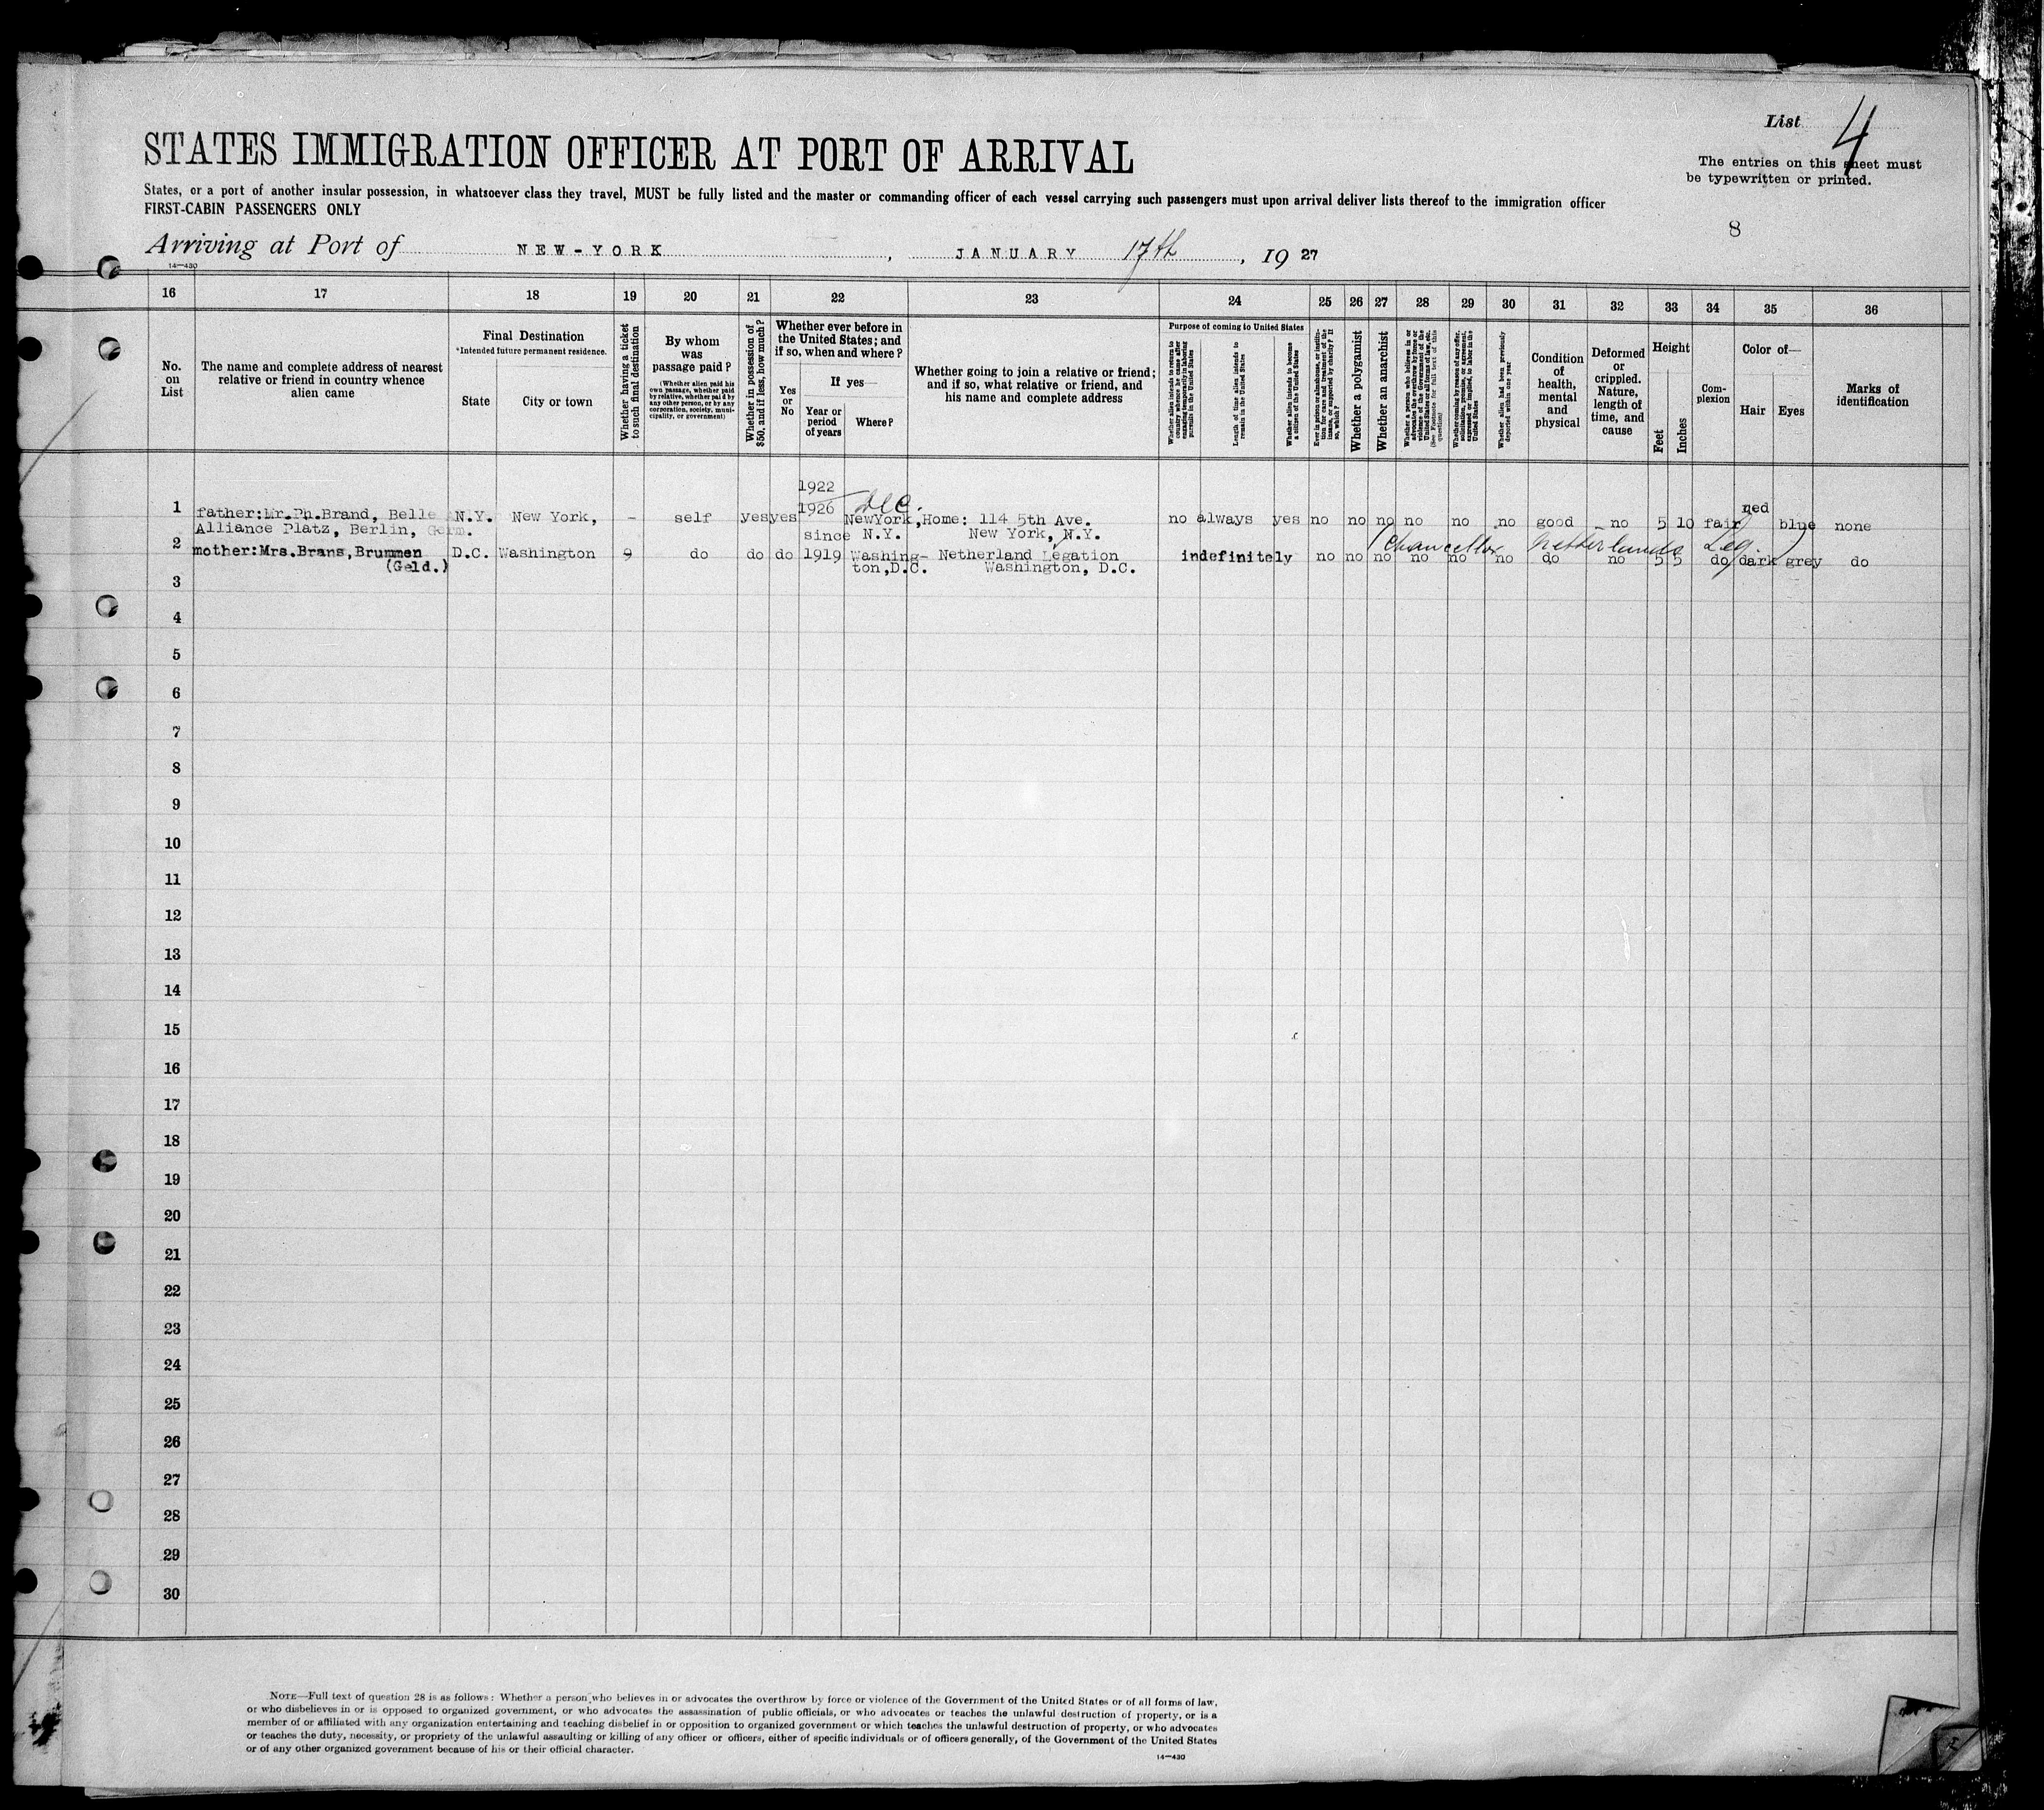 List 4
STATES IMMIGRATION OFFICER AT PORT OF ARRIVAL
The entries on this sheet must
be typewritten or printed.
States, or a port of another insular possession, in whatsoever class they travel, MUST be fully listed and the master or commanding officer of each vessel carrying such passengers must upon arrival deliver lists thereof to the immigration officer
FIRST-CABIN PASSENGERS ONLY
8
Arriving at Port of NEW-YORK, JANUARY 17th, 19 27
14—430
16 17 18 19 20 21 22 23 24 25 26 27 28 29 30 31 32 33 34 35 36
No. on List
The name and complete address of nearest relative or friend in country whence alien came
Final Destination
*Intended future permanent residence.
State
City or town
Whether having a ticket to such final destination
By whom was passage paid?
(Whether alien paid his own passage, whether paid by relative, whether paid by any other person, or by any corporation, society, municipality, or government)
Whether in possession of $50, and if less, how much?
Whether ever before in the United States; and if so, when and where?
Yes or No
If yes—
Year or period of years
Where?
Whether going to join a relative or friend; and if so, what relative or friend, and his name and complete address
Purpose of coming to United States
Whether alien intends to return to country whence he came after engaging temporarily in laboring pursuits in the United States
Length of time alien intends to remain in the United States
Whether alien intends to become a citizen of the United States
Ever in prison or almshouse, or institution for care and treatment of the insane, or supported by charity? If so, which?
Whether a polygamist
Whether an anarchist
Whether a person who believes in or advocates the overthrow by force or violence of the Government of the United States or all forms of law, etc. (See Footnote for full text of this question)
Whether coming by reason of any offer, solicitation, promise, or agreement, expressed or implied, to labor in the United States
Whether alien had been previously deported within one year
Condition of health, mental and physical
Deformed or crippled. Nature, length of time, and cause
Height
Feet
Inches
Complexion
Color of—
Hair
Eyes
Marks of identification
1922
1926 Dec.
1 father:Mr.Ph.Brand, Belle N.Y. New York, - self yes yes NewYork, Home: 114 5th Ave. no always yes no no no no no no good no 5 10 fair red blue none
Alliance Platz, Berlin, Germ. since N.Y. New York, N.Y.
Chancellor Netherlands Leg.
2 mother:Mrs.Brans, Brummen D.C. Washington 9 do do do 1919 Washing- Netherland Legation indefinitely no no no no no no do no 5 5 do dark grey do
(Geld.) ton,D.C. Washington, D.C.
3
4
5
6
7
8
9
10
11
12
13
14
15
16
17
18
19
20
21
22
23
24
25
26
27
28
29
30
NOTE—Full text of question 28 is as follows: Whether a person who believes in or advocates the overthrow by force or violence of the Government of the United States or of all forms of law,
or who disbelieves in or is opposed to organized government, or who advocates the assassination of public officials, or who advocates or teaches the unlawful destruction of property, or is a
member of or affiliated with any organization entertaining and teaching disbelief in or opposition to organized government or which teaches the unlawful destruction of property, or who advocates
or teaches the duty, necessity, or propriety of the unlawful assaulting or killing of any officer or officers, either of specific individuals or of officers generally, of the Government of the United States
or of any other organized government because of his or their official character.
14—430